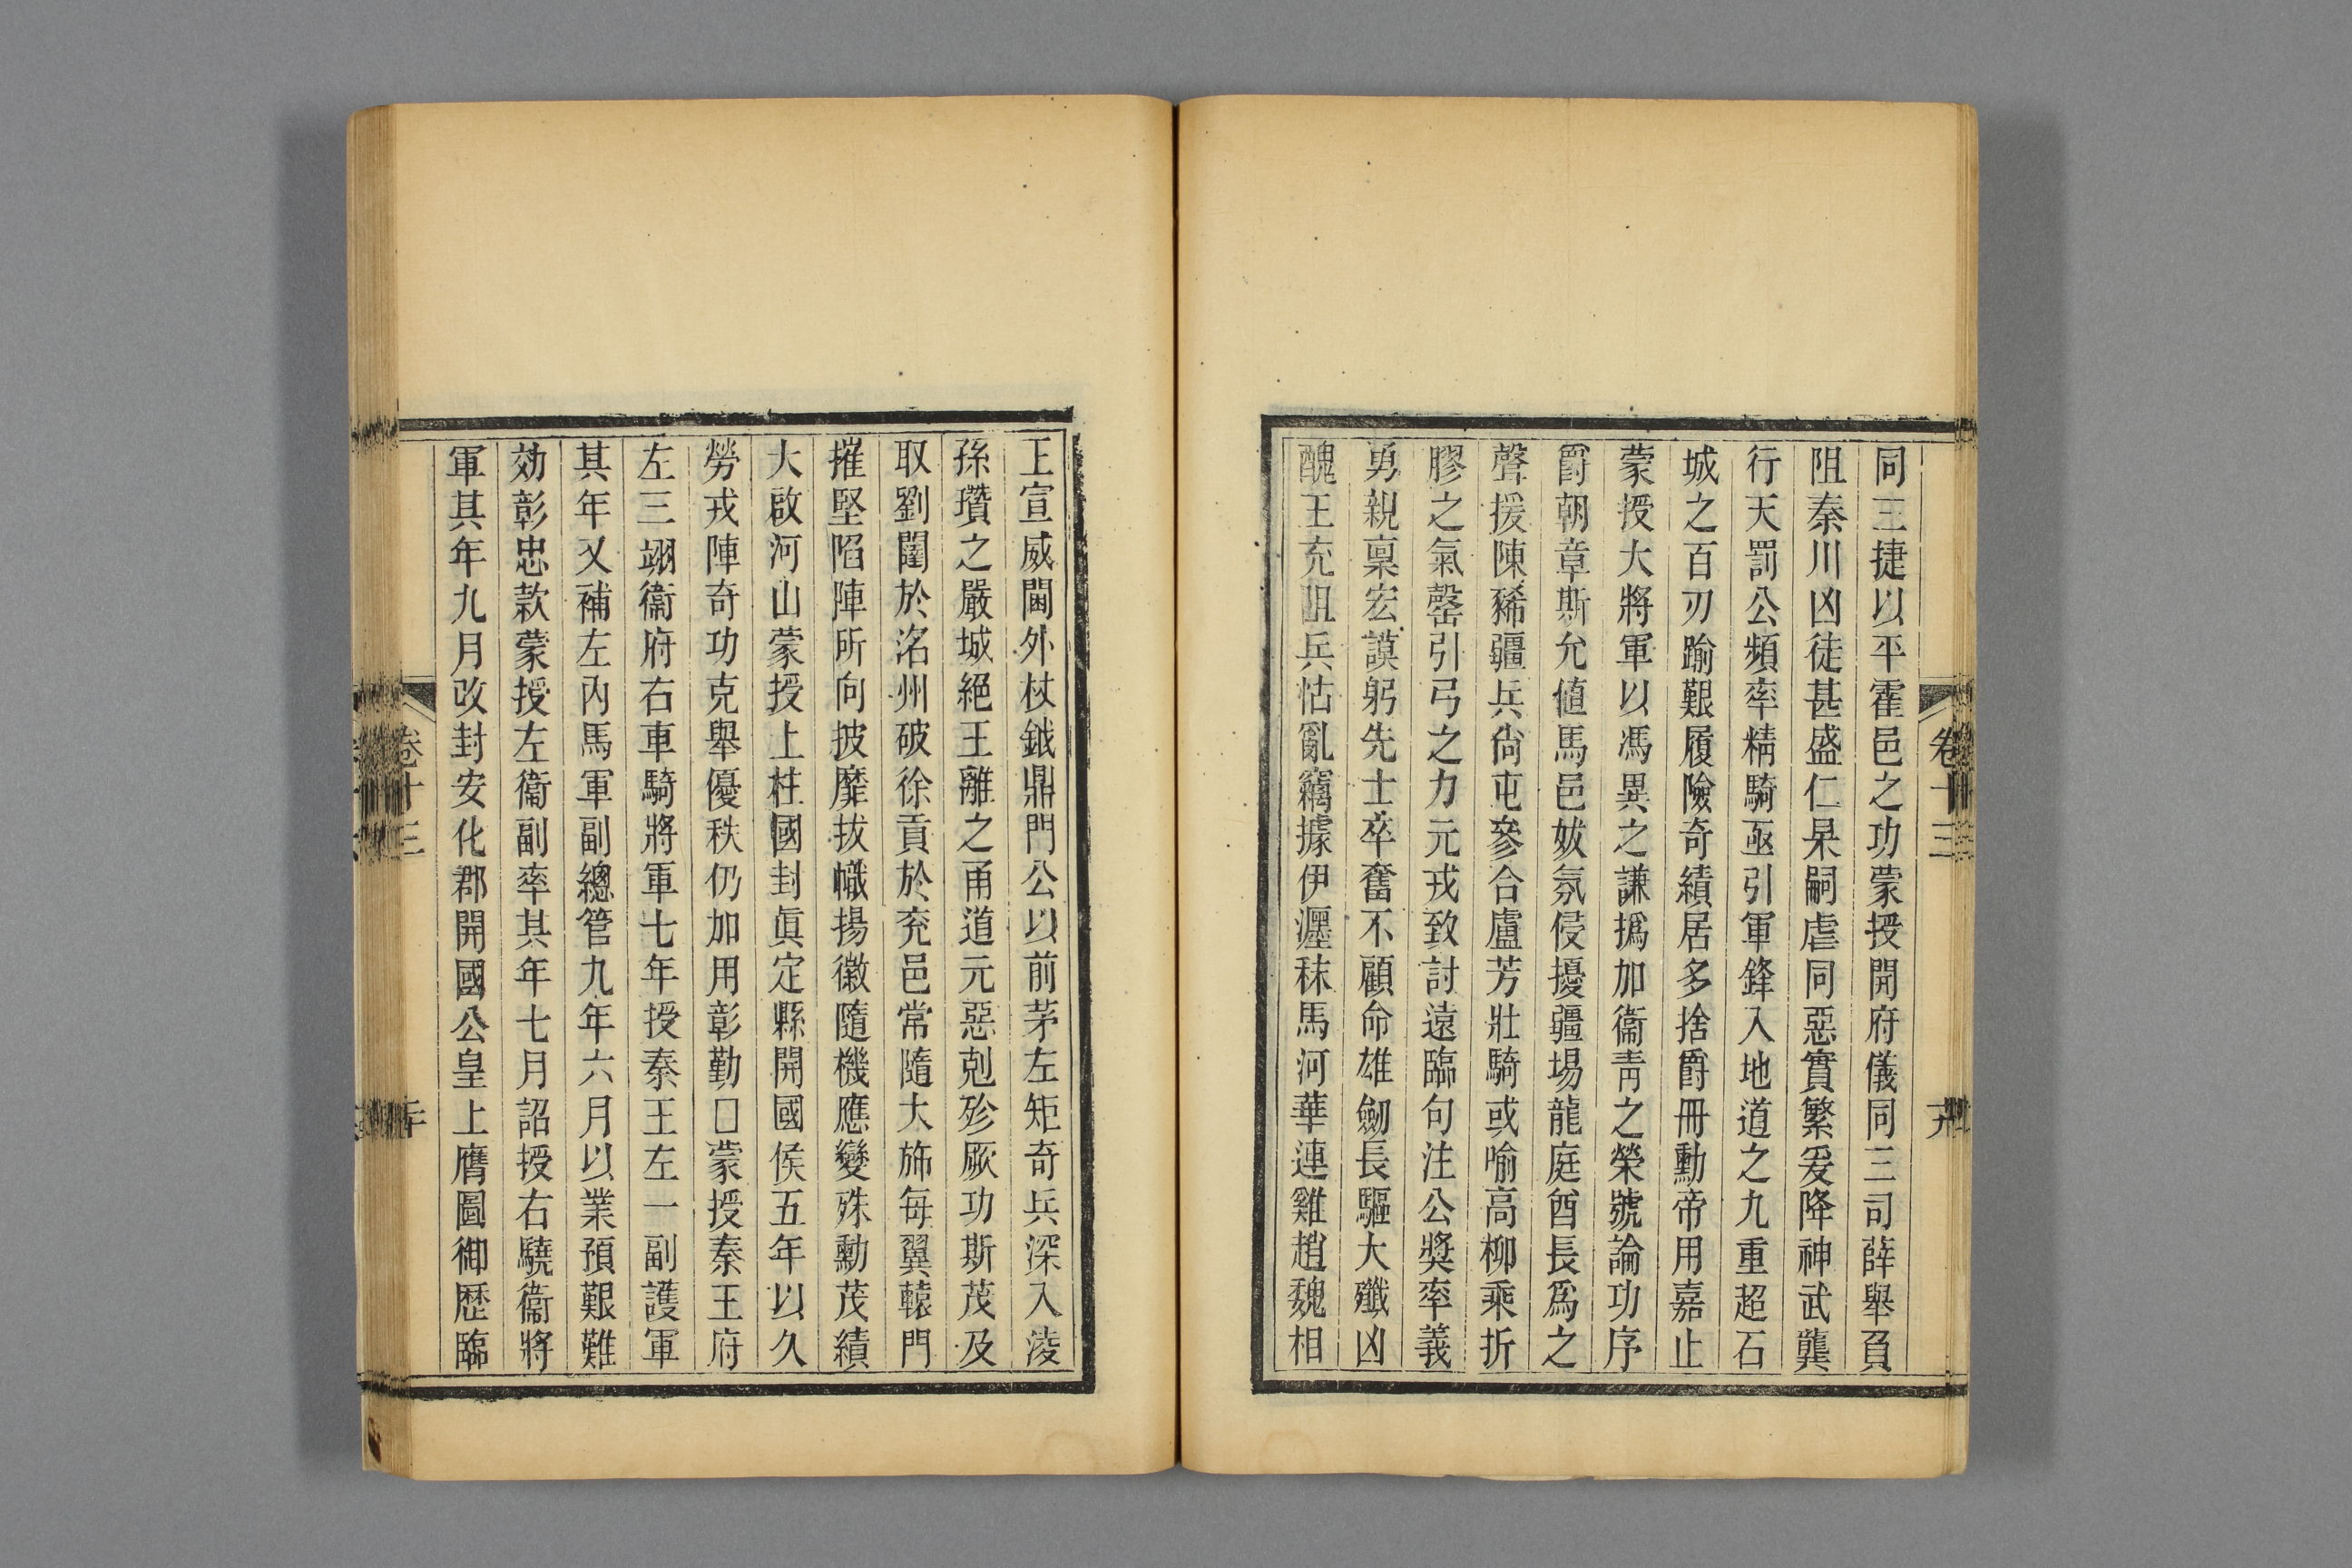 同三捷以平霍邑之功蒙授開府儀同三司薛舉負
阻秦川凶徒甚盛仁杲嗣虐同惡實繁爰降神武龔
行天罰公頻率精騎亟引軍鋒入地道之九重超石
城之百刃踰艱履險奇績居多捨爵冊勳帝用嘉止
蒙授大將軍以馮異之謙撝加衞靑之榮號論功序
爵朝章斯允値馬邑妭氛侵擾疆埸龍庭酋長爲之
聲援陳豨疆兵尙屯參合盧芳壯騎或喻高柳乘折
膠之氣罄引弓之力元戎致討遠臨句注公奬率義
勇親稟宏謨躬先士卒奮不顧命雄劒長驅大殲凶
醜王充阻兵怙亂竊據伊瀍秣馬河華連雞趙魏相
王宣威閫外杖鉞鼎門公以前茅左矩奇兵深入淩
孫瓚之嚴城絕王離之甬道元惡剋殄厥功斯茂及
取劉闥於洺州破徐貢於兖邑常隨大斾每翼轅門
摧堅陷陣所向披靡拔幟揚徽隨機應變殊勳茂績
大啟河山蒙授上柱國封眞定縣開國侯五年以久
勞戎陣奇功克舉優秩仍加用彰勤□蒙授秦王府
左三翊衞府右車騎將軍七年授秦王左一副護軍
其年又補左內馬軍副總管九年六月以業預艱難
効彰忠款蒙授左衞副率其年七月詔授右驍衞將
軍其年九月改封安化郡開國公皇上膺圖御歷臨
卷十三
卷十三